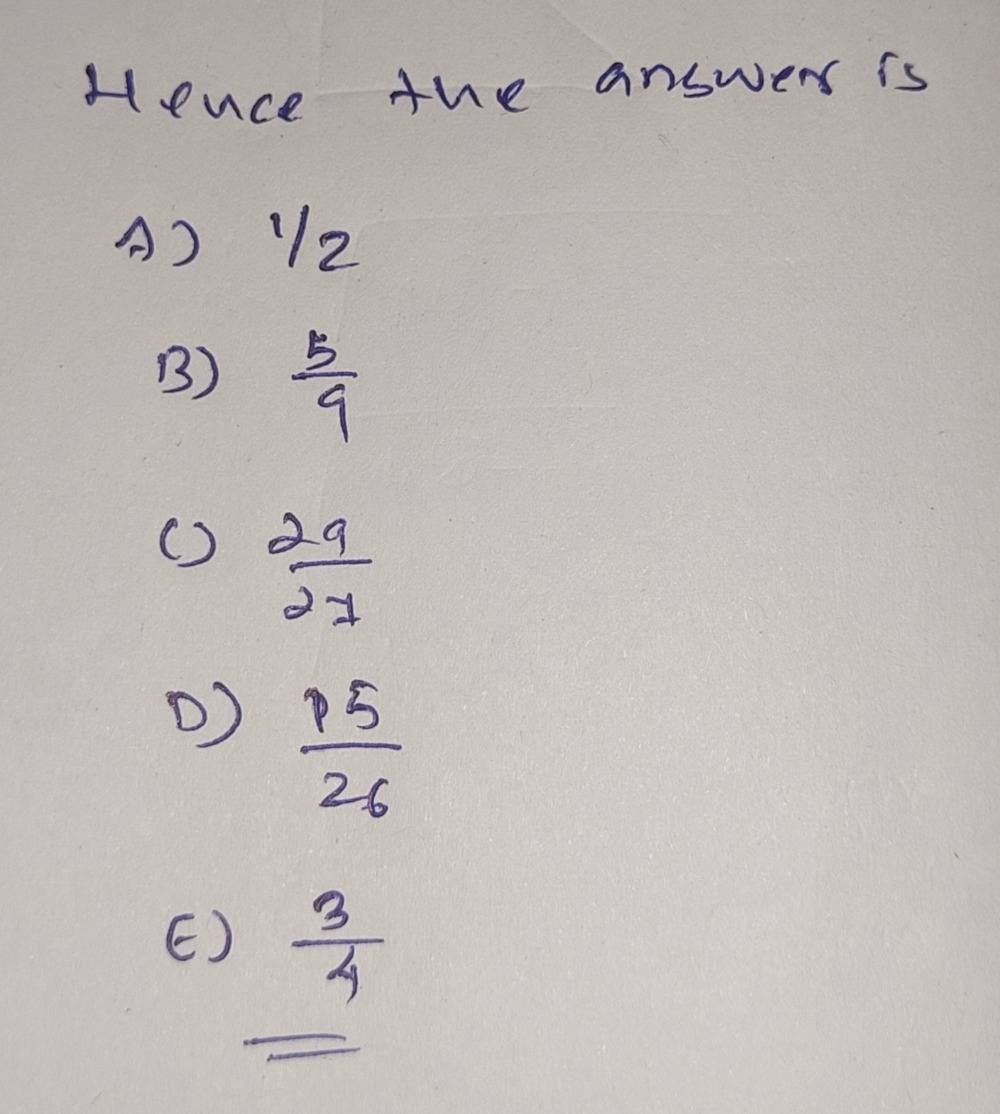 Hence the answer is
A) 1/2
B) 5/9
C) 29/27
D) 15/26
E) 3/4